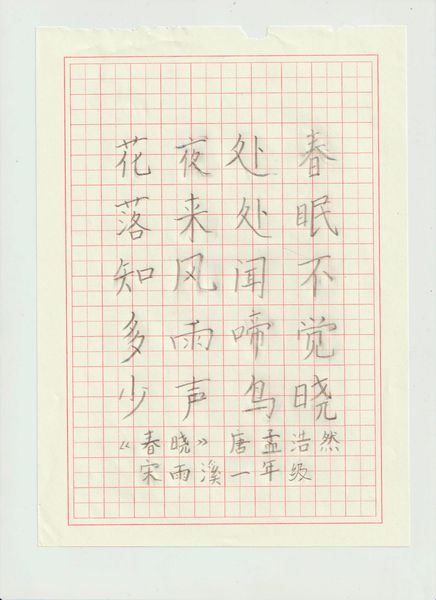 春眠不觉晓
处处闻啼鸟
夜来风雨声
花落知多少
《春晓》唐孟浩然
宋雨溪一年级